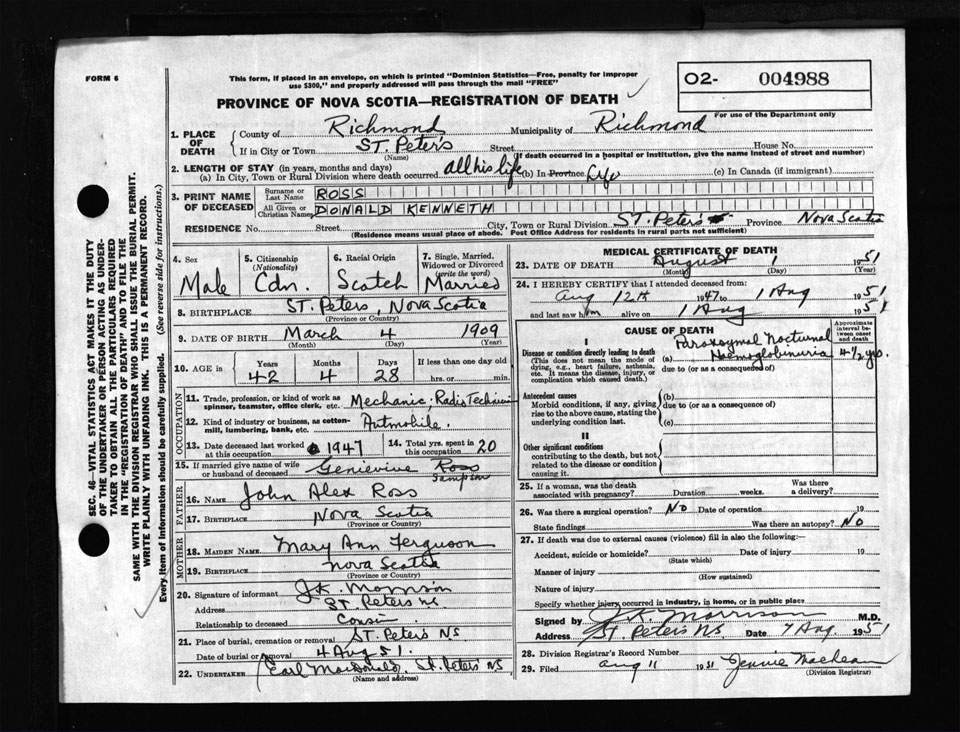 FORM 6
This form, if placed in an envelope, on which is printed "Dominion Statistics—Free, penalty for improper
use $300," and properly addressed will pass through the mail "FREE"
O2- 004988
For use of the Department only
PROVINCE OF NOVA SCOTIA—REGISTRATION OF DEATH
1. PLACE OF DEATH
County of Richmond Municipality of Richmond
If in City or Town St. Peter's Street House No.
(Name) (If death occurred in a hospital or institution, give the name instead of street and number)
2. LENGTH OF STAY (in years, months and days)
(a) In City, Town or Rural Division where death occurred all his life (b) In Province Life (c) In Canada (if immigrant)
3. PRINT NAME OF DECEASED
Surname or Last Name ROSS
All Given or Christian Names DONALD KENNETH
RESIDENCE No. Street City, Town or Rural Division St. Peters Province Nova Scotia
(Residence means usual place of abode. Post Office Address for residents in rural parts not sufficient)
4. Sex
Male
5. Citizenship (Nationality)
Cdn.
6. Racial Origin
Scotch
7. Single, Married, Widowed or Divorced (write the word)
Married
8. BIRTHPLACE St. Peters, Nova Scotia
(Province or Country)
9. DATE OF BIRTH March 4 1909
(Month) (Day) (Year)
10. AGE in Years Months Days If less than one day old
42 4 28 hrs. or min.
OCCUPATION
11. Trade, profession, or kind of work as spinner, teamster, office clerk, etc. Mechanic; Radio Technician
12. Kind of industry or business, as cotton-mill, lumbering, bank, etc. Automobile.
13. Date deceased last worked at this occupation 1947
14. Total yrs. spent in this occupation 20
15. If married give name of wife or husband of deceased Genievive Ross
Sampson
FATHER
16. Name John Alex Ross
17. Birthplace Nova Scotia
(Province or Country)
MOTHER
18. Maiden Name Mary Ann Ferguson
19. Birthplace Nova Scotia
(Province or Country)
20. Signature of informant J.K. Morrison
Address St. Peters NS
Relationship to deceased Cousin
21. Place of burial, cremation or removal St. Peter's NS
Date of burial or removal 4 Aug 51.
22. UNDERTAKER Earl MacDonald, St. Peters NS
(Name and address)
MEDICAL CERTIFICATE OF DEATH
23. DATE OF DEATH August 1 1951
(Month) (Day) (Year)
24. I HEREBY CERTIFY that I attended deceased from:
Aug 12th 1947 to 1 Aug 1951
and last saw him alive on 1 Aug 1951
CAUSE OF DEATH
Approximate interval between onset and death
I
Disease or condition directly leading to death
(This does not mean the mode of dying, e.g., heart failure, asthenia, etc. It means the disease, injury, or complication which caused death.)
(a) Paroxoymal Nocturnal Haemoglobinuria 4 1/2 yrs.
due to (or as a consequence of)
Antecedent causes
Morbid conditions, if any, giving rise to the above cause, stating the underlying condition last.
(b)
due to (or as a consequence of)
(c)
II
Other significant conditions
contributing to the death, but not related to the disease or condition causing it.
25. If a woman, was the death associated with pregnancy? Duration weeks. Was there a delivery?
26. Was there a surgical operation? No Date of operation 19
State findings Was there an autopsy? No
27. If death was due to external causes (violence) fill in also the following:—
Accident, suicide or homicide? Date of injury 19
(State which)
Manner of injury
(How sustained)
Nature of injury
Specify whether injury occurred in industry, in home, or in public place
Signed by J.K. Morrison M.D.
Address St. Peter's NS Date 7 Aug. 1951
28. Division Registrar's Record Number
29. Filed Aug 11 1951 Jennie MacLean
(Division Registrar)
SEC. 46—VITAL STATISTICS ACT MAKES IT THE DUTY
OF THE UNDERTAKER OR PERSON ACTING AS UNDER-
TAKER TO OBTAIN ALL THE PARTICULARS REQUIRED
IN THE "REGISTRATION OF DEATH" AND TO FILE THE
SAME WITH THE DIVISION REGISTRAR WHO SHALL ISSUE THE BURIAL PERMIT.
WRITE PLAINLY WITH UNFADING INK. THIS IS A PERMANENT RECORD.
Every item of information should be carefully supplied. (See reverse side for instructions.)